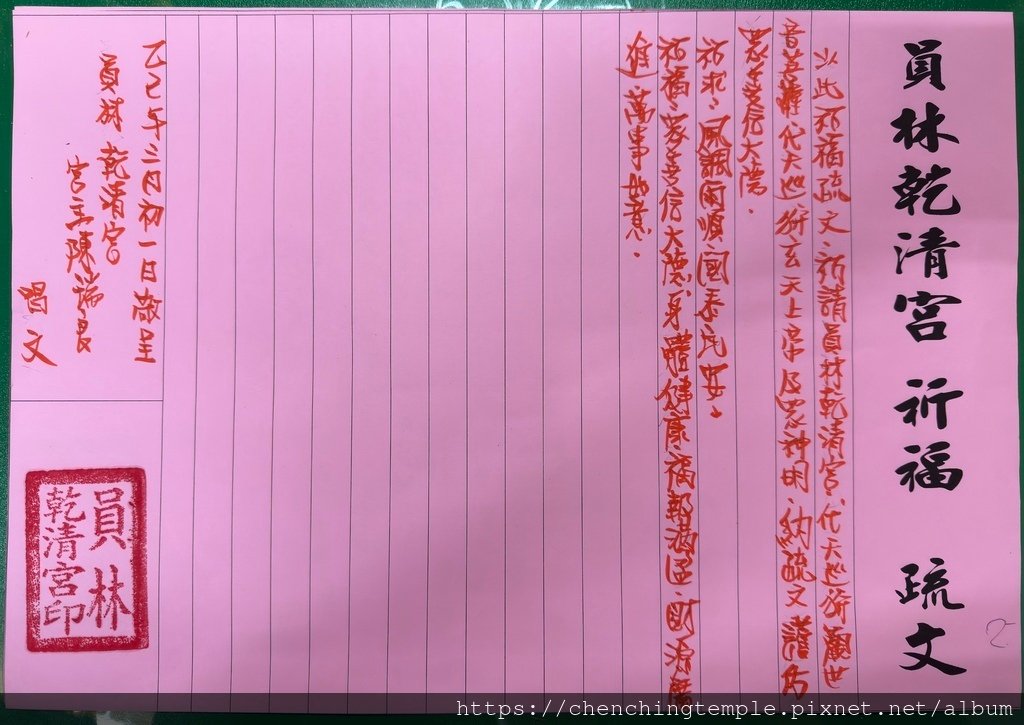 員林乾清宮 祈福 疏文
以此祈福疏文、祈請員林乾清宮、代天巡狩觀世
音菩薩、代天巡狩玄天上帝及眾神明、納疏文護佑
眾善信大德。
祈求、風調雨順、國泰民安。
祈福、眾善信大德、身體健康、福報滿溢、財源廣
進、萬事如意。
乙巳年三月初一日敬呈
員林 乾清宮
宮主陳 良
唱文
員林
乾清宮印
2
https://chenchingtemple.pixnet.net/album